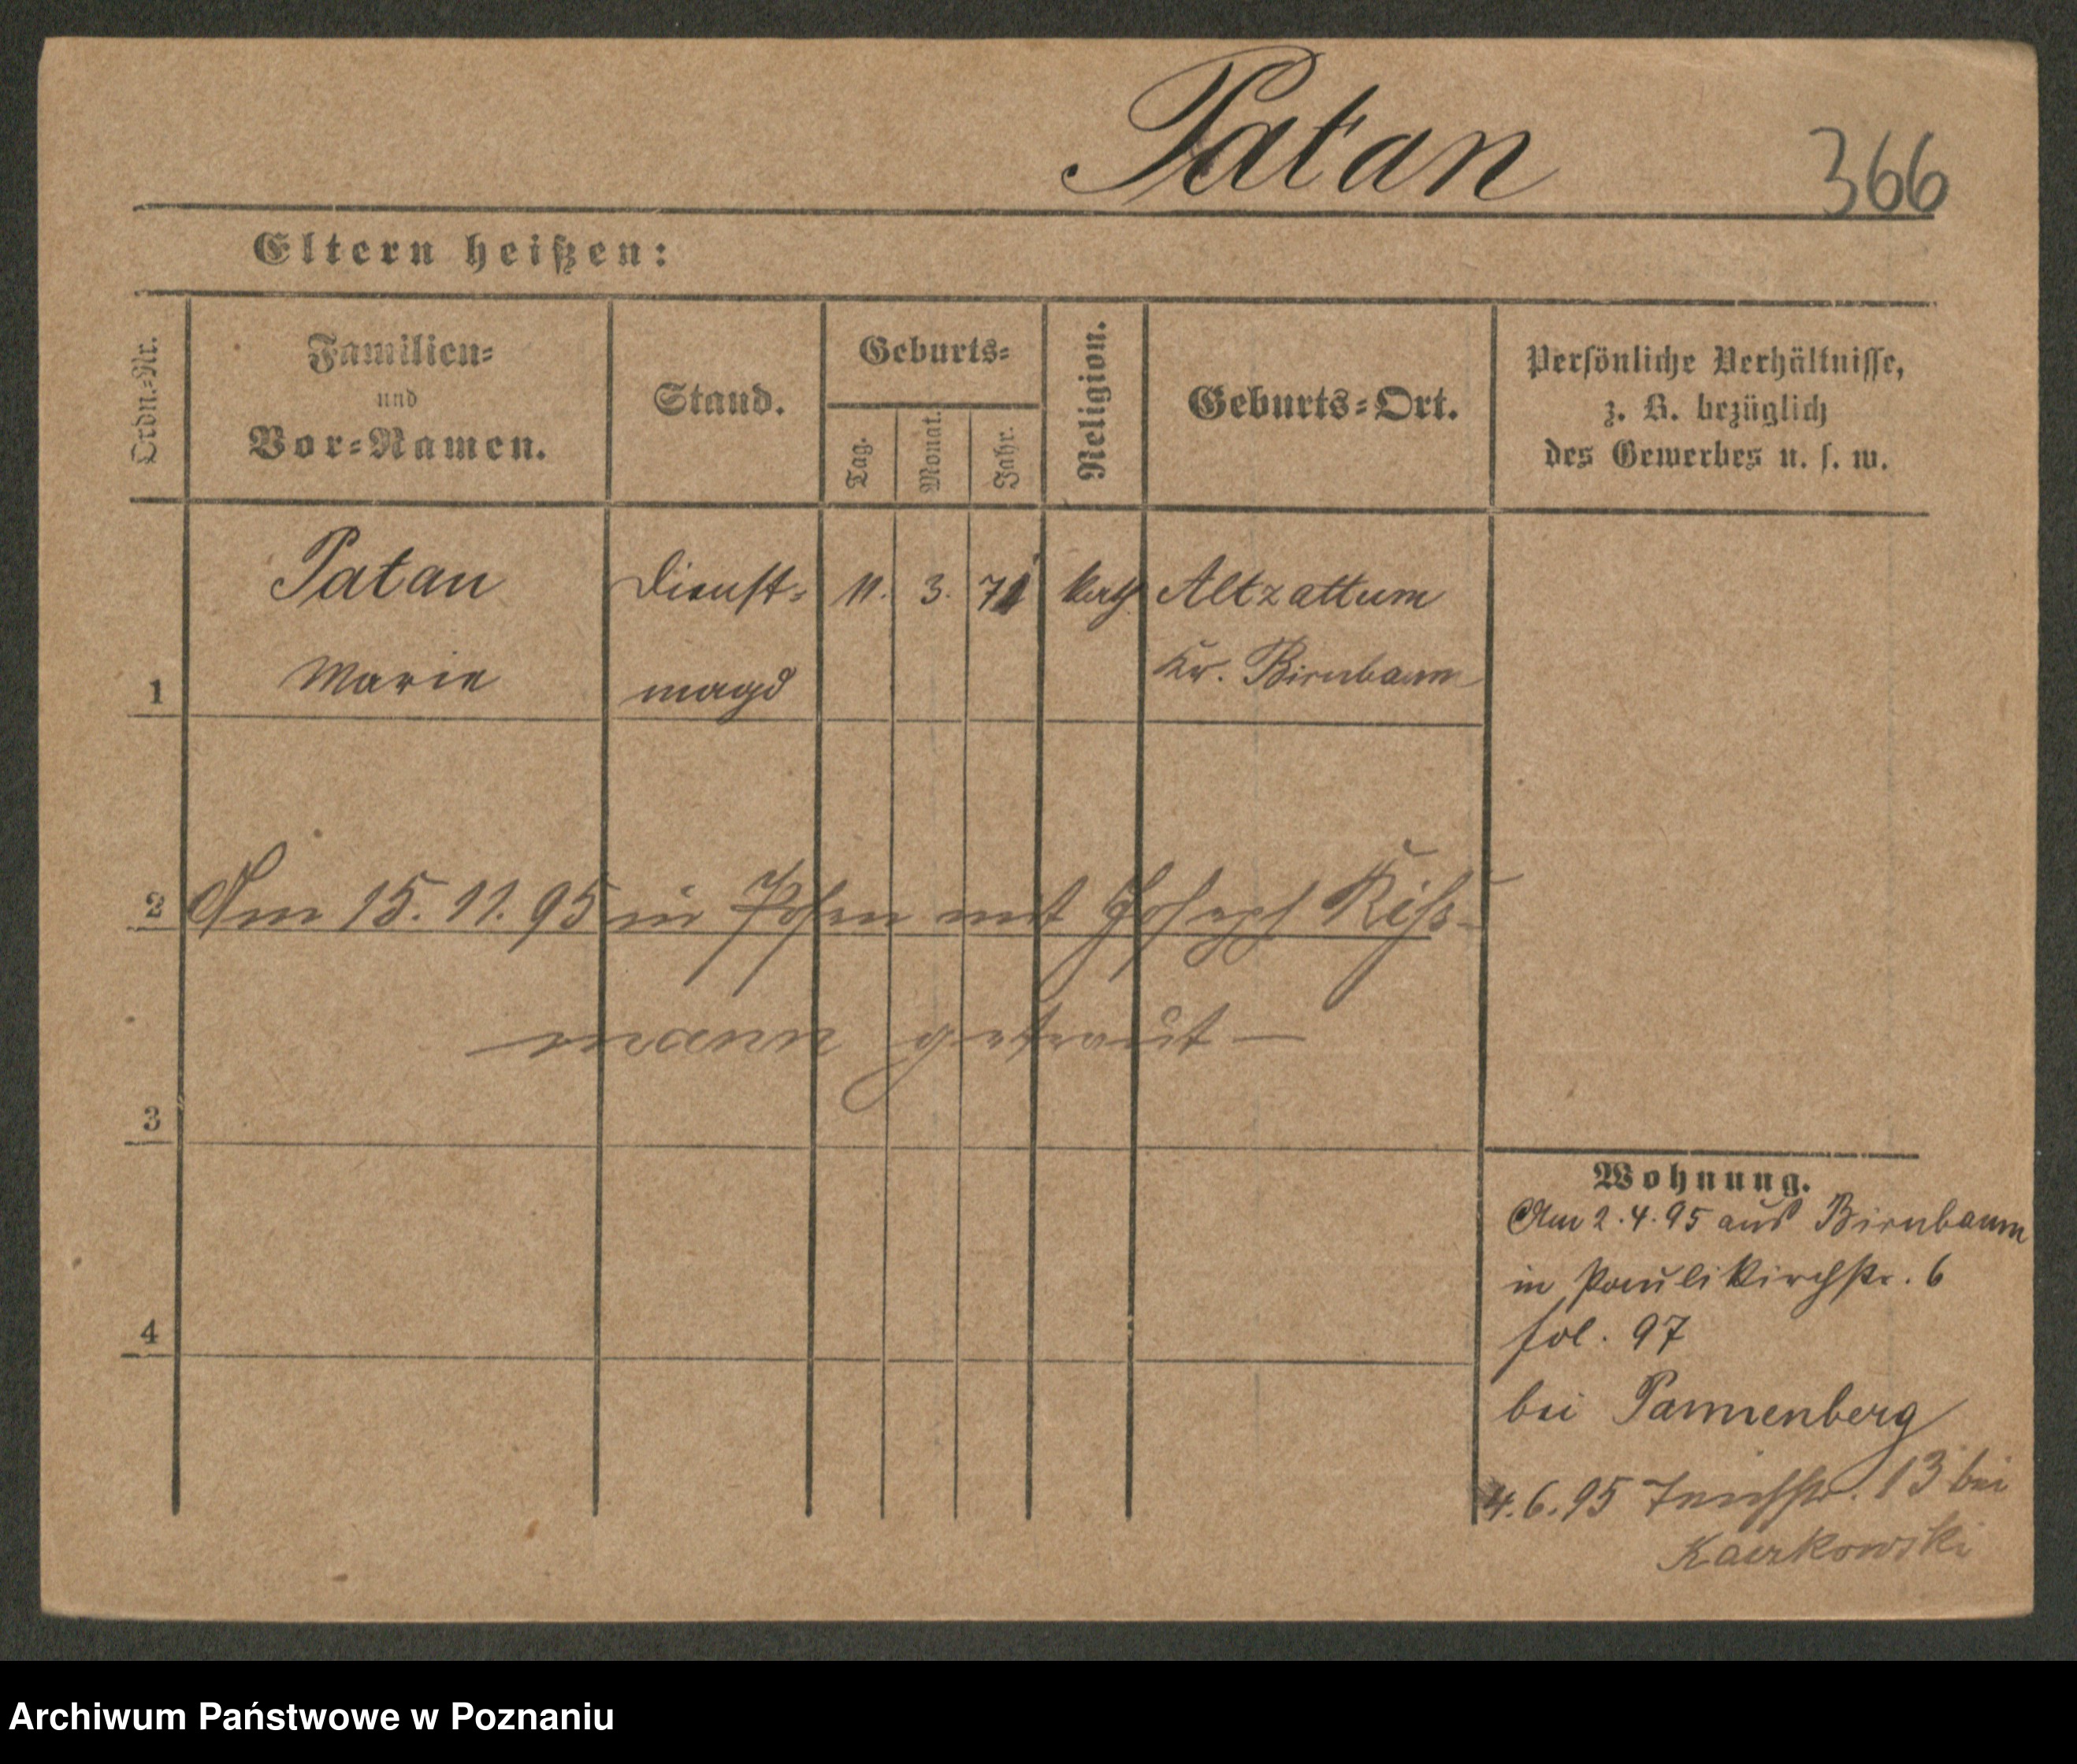 Patan
366
Eltern heißen:
Ordn.-Nr.
Familien-
und
Vor-Namen.
Stand.
Geburts-
Tag.
Monat.
Jahr.
Religion.
Geburts-Ort.
Persönliche Verhältnisse,
z. B. bezüglich
des Gewerbes u. s. w.
Patan Dienst- 11. 3. 71 kath. Altzattum
1 Marie magd Kr. Birnbaum
2 Am 15. 11. 95 in Posen mit Joseph Kiss-
mann getraut —
3
4
Wohnung.
Am 2. 4. 95 aus Birnbaum
in Paulikirchstr. 6
fol. 97
bei Pannenberg
4. 6. 95 13 bei
Archiwum Państwowe w Poznaniu